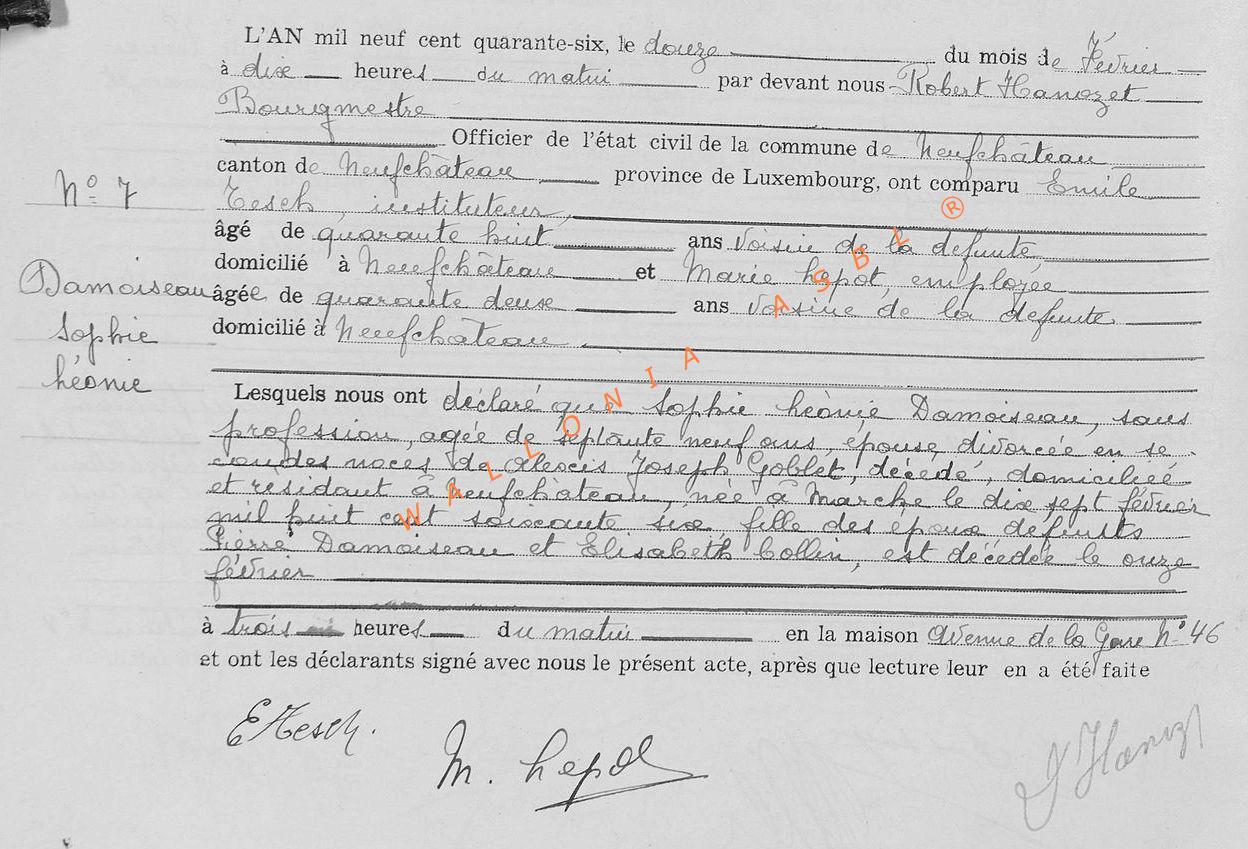 L'AN mil neuf cent quarante-six, le douze du mois de Février
à dix heures du matin par devant nous Robert Hanozet
Bourgmestre
Officier de l'état civil de la commune de Neufchâteau
canton de Neufchâteau province de Luxembourg, ont comparu Emile
N° 7
Tesch, instituteur,
âgé de quarante huit ans voisin de la defunte,
domicilié à Neufchâteau et Marie Lepot, employée
Damoiseau
Sophie
Léonie
âgée de quarante deuse ans voisine de la defunte.
domicilié à Neufchâteau
Lesquels nous ont déclaré que Sophie Léonie Damoiseau, sans
profession, agée de septante neuf ans, épouse divorcée en se-
condes noces de Alexis Joseph Goblet, décédé, domiciliée
et residant à Neufchâteau, née à Marche le dix sept février
mil huit cent soixante six, fille des epoux defunts
Pierre Damoiseau et Elisabeth Collin, est décédée le onze
février
à trois heures du matin en la maison Avenue de la Gare N° 46
et ont les déclarants signé avec nous le présent acte, après que lecture leur en a été faite
ETesch. M. Lepot
WALLONIA ASBL ®